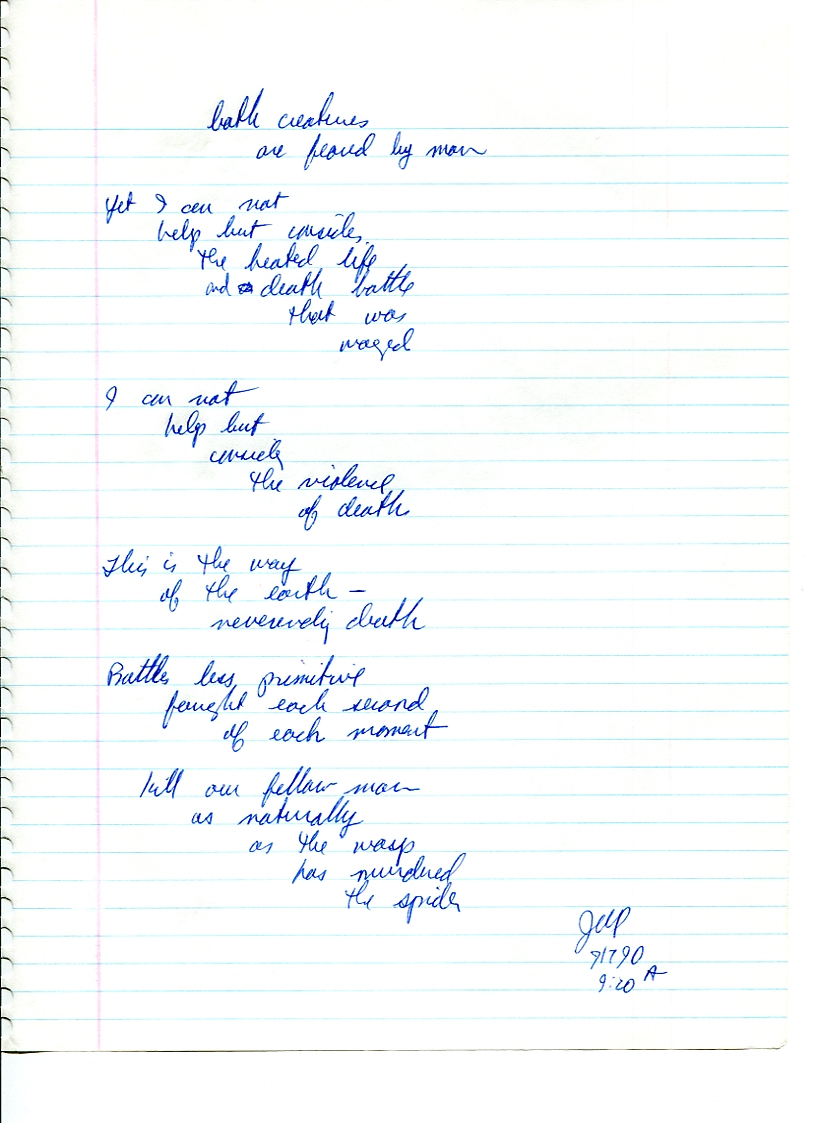 both creatures
are feared by man
Yet I can not
help but consider
the heated life
and death battle
that was
waged
I can not
help but
consider
the violence
of death
This is the way
of the earth –
neverending death
Battles less primitive
fought each second
of each moment
kill our fellow man
as naturally
as the wasp
has murdered
the spider
9:20 A